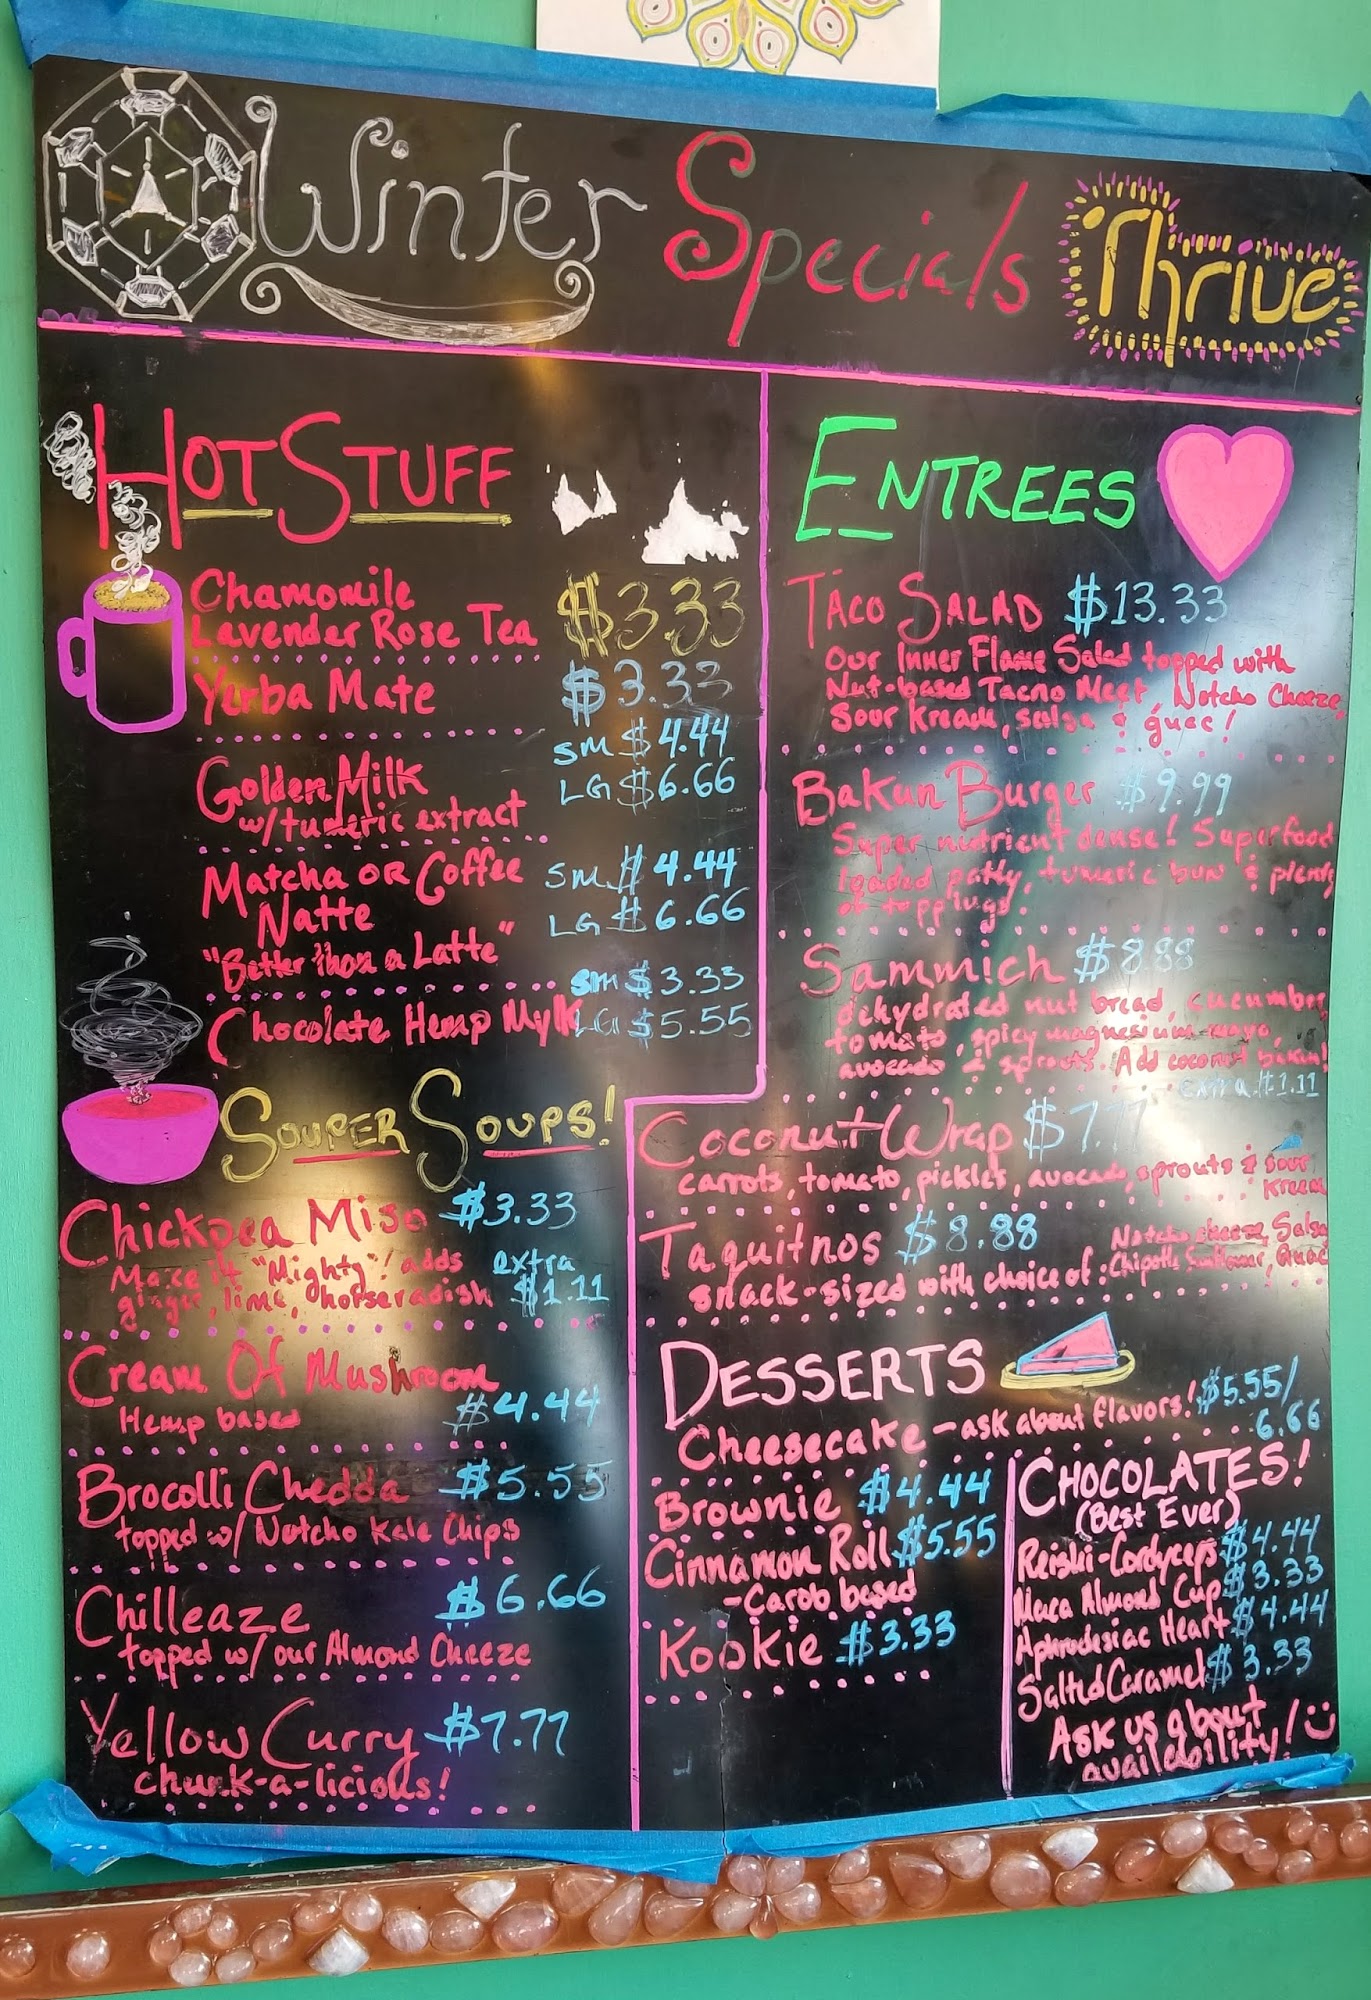 Winter Specials Thrive
Hot Stuff
Chamomile
Lavender Rose Tea $3.33
Yerba Mate $3.33
Golden Milk SM $4.44
w/tumeric extract LG $6.66
Matcha or Coffee SM $4.44
Natte LG $6.66
"Better than a Latte"
Chocolate Hemp Mylk SM $3.33
LG $5.55
Souper Soups!
Chickpea Miso $3.33
Make it "Mighty"! adds extra
ginger, lime, horseradish $1.11
Cream Of Mushroom
Hemp based $4.44
Brocolli Chedda $5.55
topped w/ Notcho Kale Chips
Chilleaze $6.66
topped w/ our Almond Cheeze
Yellow Curry $7.77
chunk-a-licious!
Entrees
Taco Salad $13.33
Our Inner Flame Salad topped with
Nut-based Tacno Meet, Notcho Cheeze,
Sour Kream, salsa & guac!
Bakun Burger $9.99
Super nutrient dense! Superfood
loaded patty, tumeric bun & plenty
of toppings.
Sammich $8.88
dehydrated nut bread, cucumber,
tomato, spicy magnesium mayo,
avocado & sprouts. Add coconut bakun!
extra $1.11
Coconut Wrap $7.77
carrots, tomato, pickles, avocado, sprouts & sour
kreem
Taquitnos $8.88
snack-sized with choice of: Notcho cheeze, Salsa,
Chipotle Sunflower, Guac
Desserts
Cheesecake - ask about flavors! $5.55/
6.66
Brownie $4.44
Cinnamon Roll $5.55
- Carob based
Kookie $3.33
Chocolates!
(Best Ever)
Reishi-Cordyceps $4.44
Maca Almond Cup $3.33
Aphrodesiac Heart $4.44
Salted Caramel $3.33
Ask us about
availability!